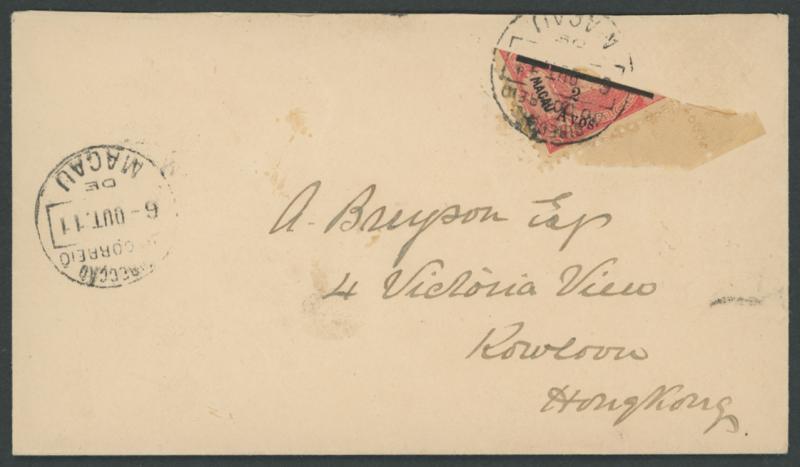 MACAU
DE
MACAU
2
AVOS
MACAU
DE
6-OUT.11
CORREIO
A. Breyson Esq
4 Victoria View
Kowloon
HongKong